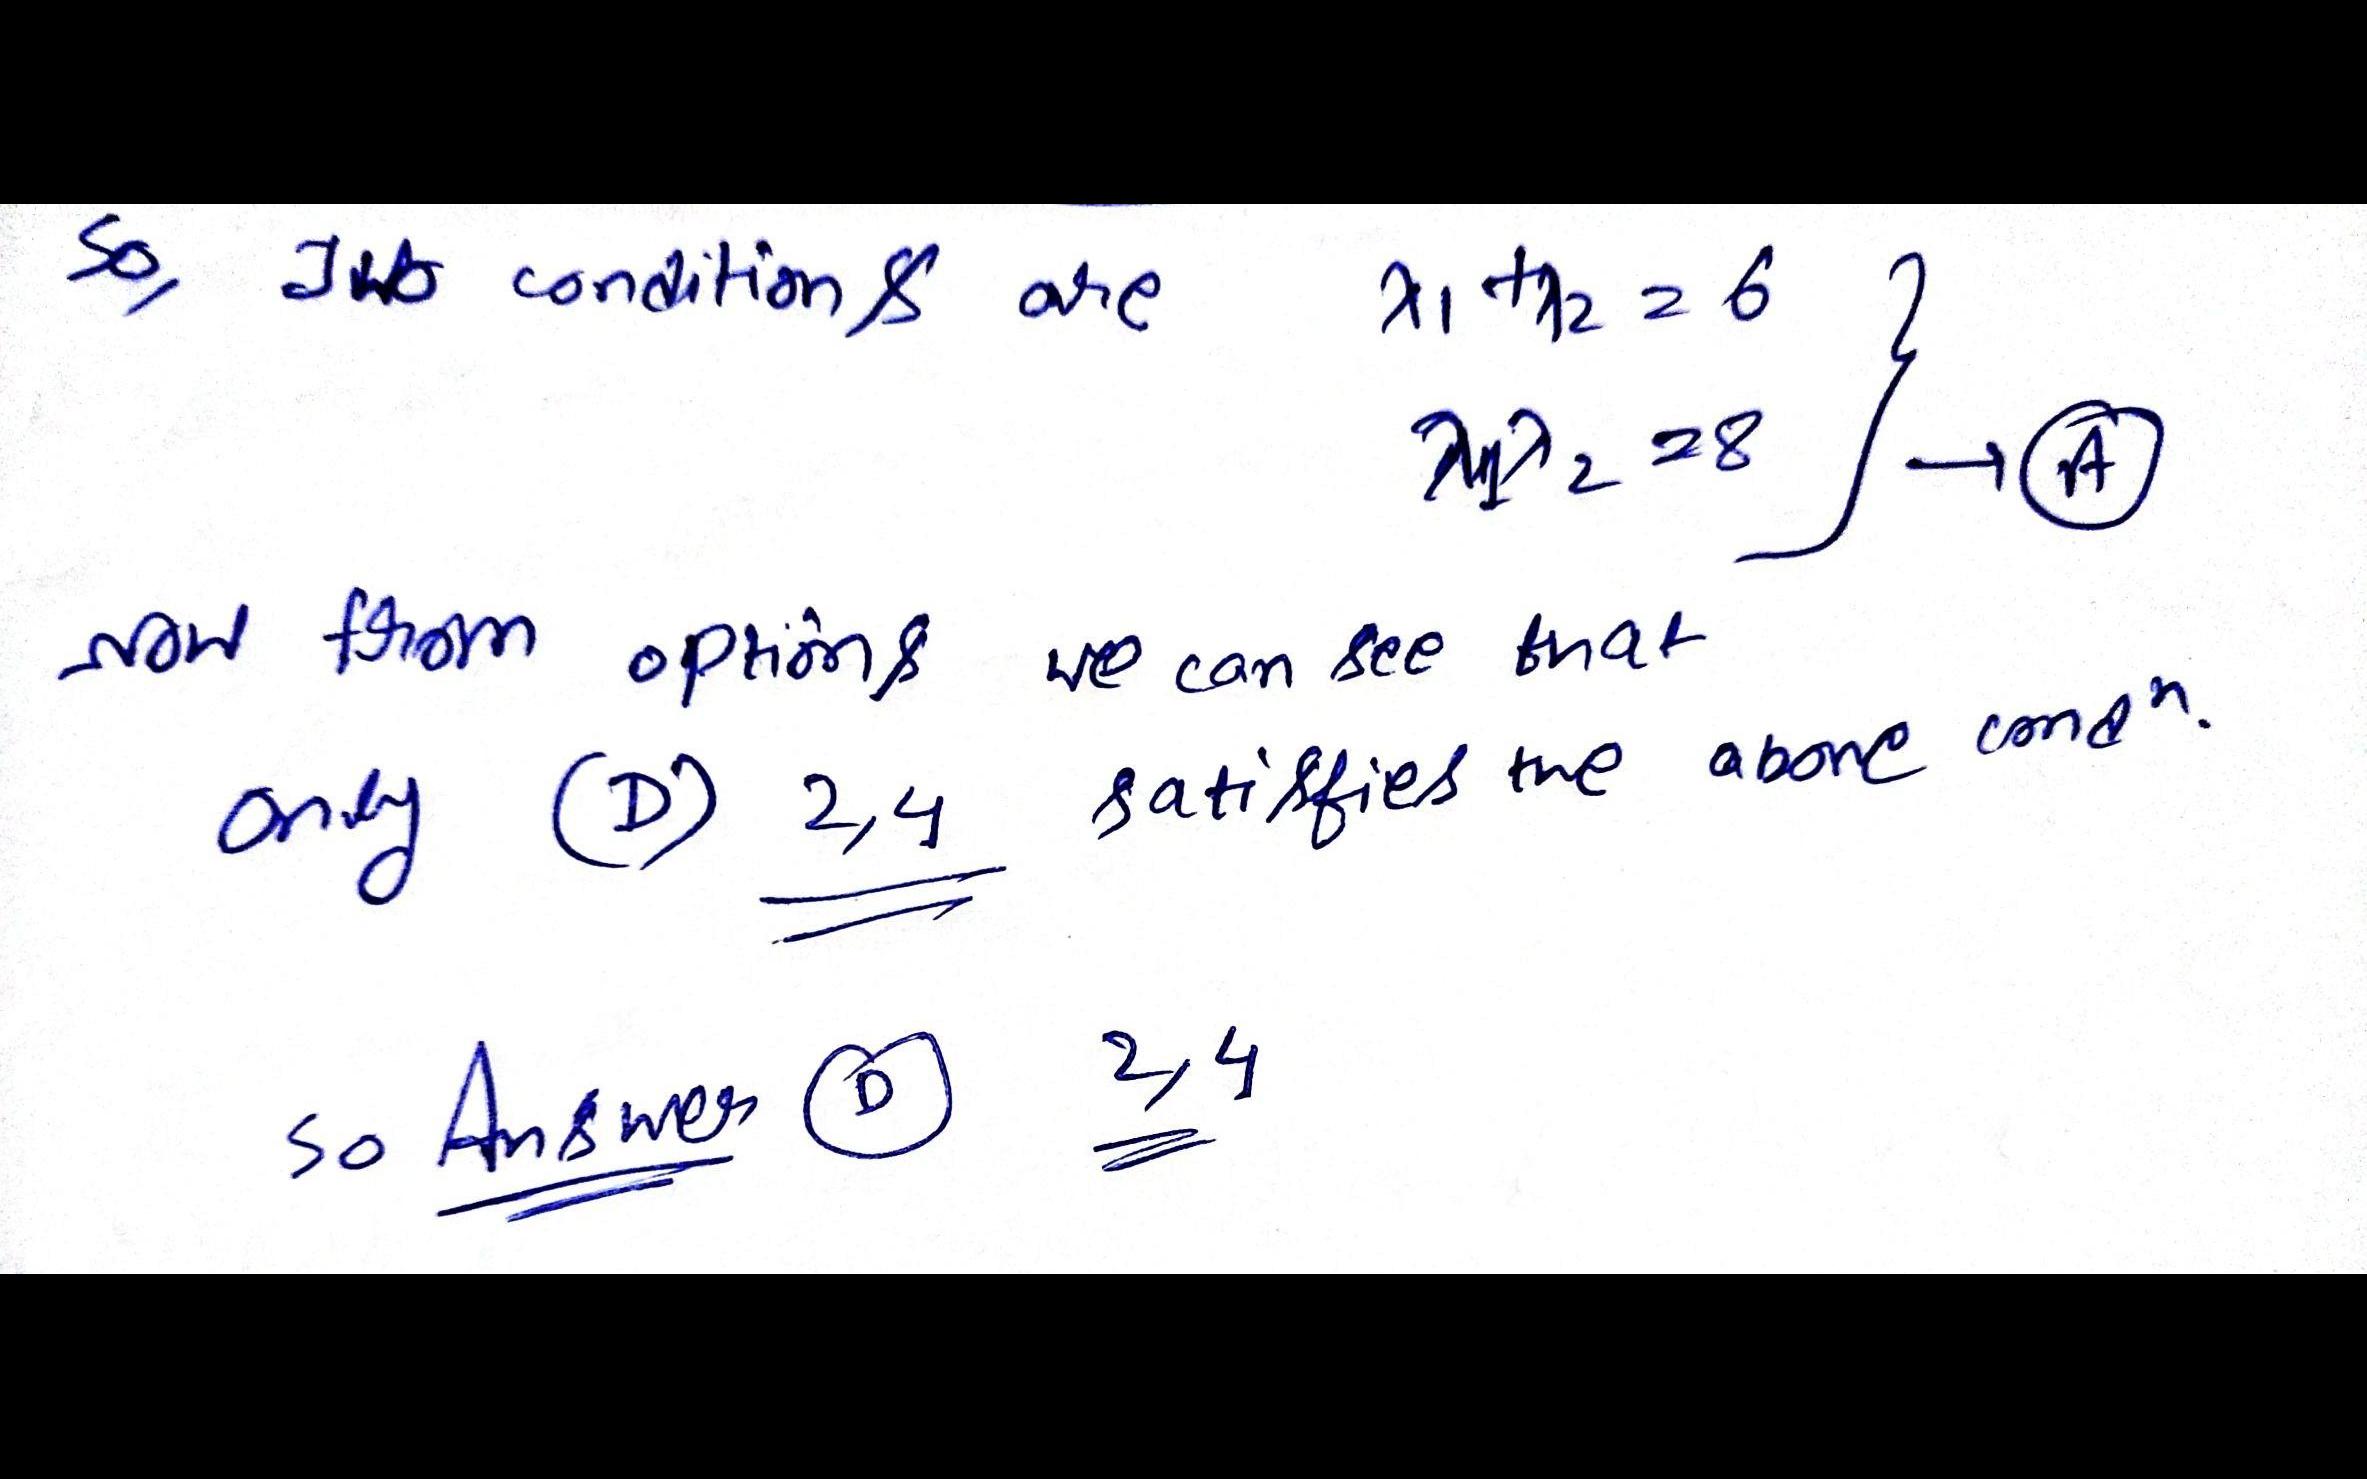 So, Two conditions are λ1 + λ2 = 6
λ1λ2 = 8
→ (A)
Now from options we can see that
only (D) 2,4 satisfies the above condn.
so Answer (D) 2,4